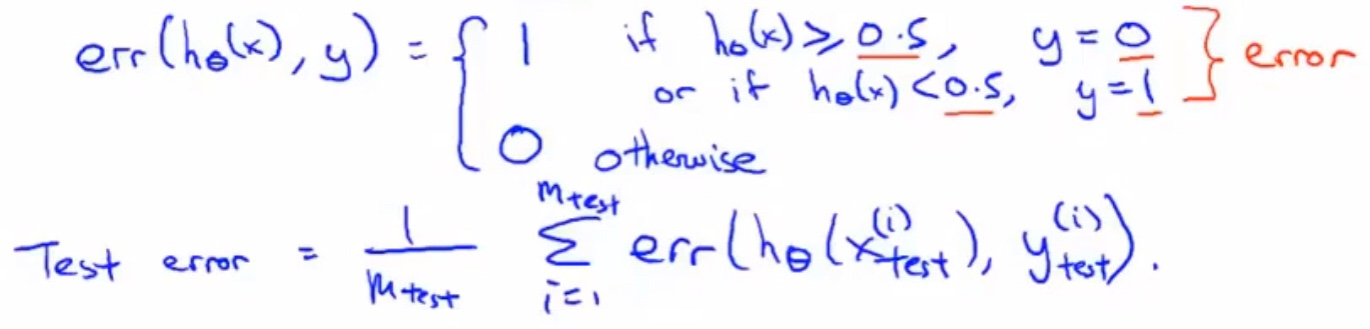 err(hθ(x), y) = { 1 if hθ(x) ≥ 0.5, y = 0 } error
or if hθ(x) < 0.5, y = 1
0 otherwise
Test error = 1/mtest Σ_{i=1}^{mtest} err(hθ(x_test^(i)), y_test^(i)).